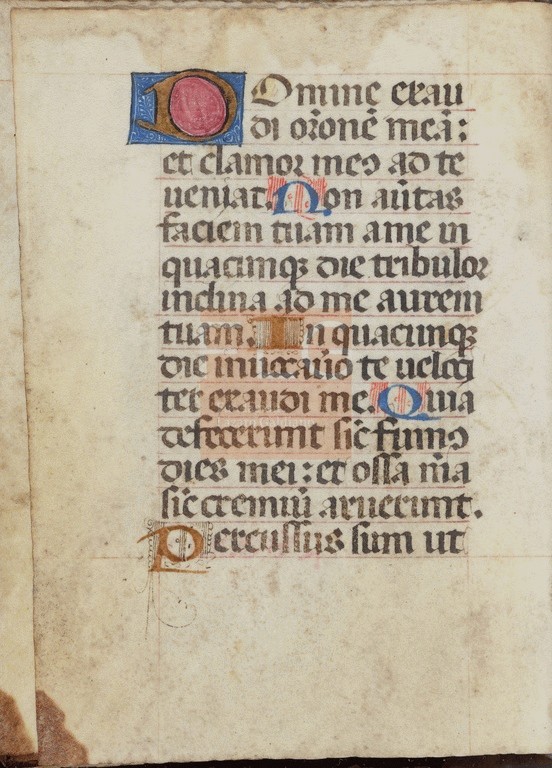 Domine exau
di or̃onẽ meã:
et clamor meꝰ ad te
ueniat. Non aũtas
faciem tuam a me in
quacumqꝫ die tribulor
inclina ad me aurem
tuam. In quacumqꝫ
die inuocauo te ueloci
ter exaudi me. Quia
defecerunt sic̃ fumꝰ
dies mei: et ossa m̃a
sic̃ cremiũ aruerunt.
Percussus sum ut